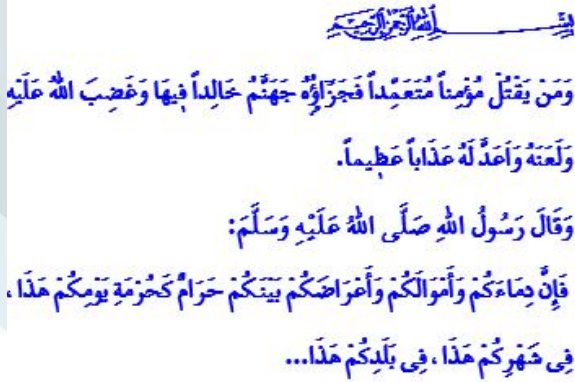 بِسْمِ اللّٰهِ الرَّحْمٰنِ الرَّحِيمِ
وَمَنْ يَقْتُلْ مُؤْمِناً مُتَعَمِّداً فَجَزَاؤُهُ جَهَنَّمُ خَالِداً فِيهَا وَغَضِبَ اللّٰهُ عَلَيْهِ
وَلَعَنَهُ وَاَعَدَّ لَهُ عَذَاباً عَظِيماً.
وَقَالَ رَسُولُ اللّٰهِ صَلَّى اللّٰهُ عَلَيْهِ وَسَلَّمَ:
فَإِنَّ دِمَاءَكُمْ وَأَمْوَالَكُمْ وَأَعْرَاضَكُمْ بَيْنَكُمْ حَرَامٌ كَحُرْمَةِ يَوْمِكُمْ هَذَا ،
فِى شَهْرِكُمْ هَذَا ، فِى بَلَدِكُمْ هَذَا...